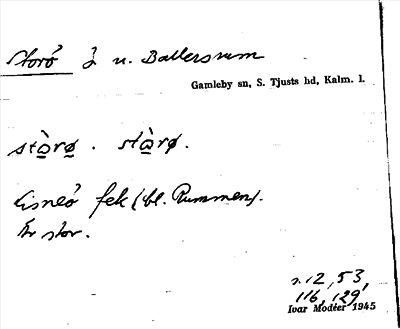 Storö å u. Ballersrum
Gamleby sn, S. Tjusts hd, Kalm. l.
stò̱rø̱. stà̱rø.
fek (bl. Rummen).
Är stor.
s. 12, 53,
116, 129
Ivar Modéer 1945